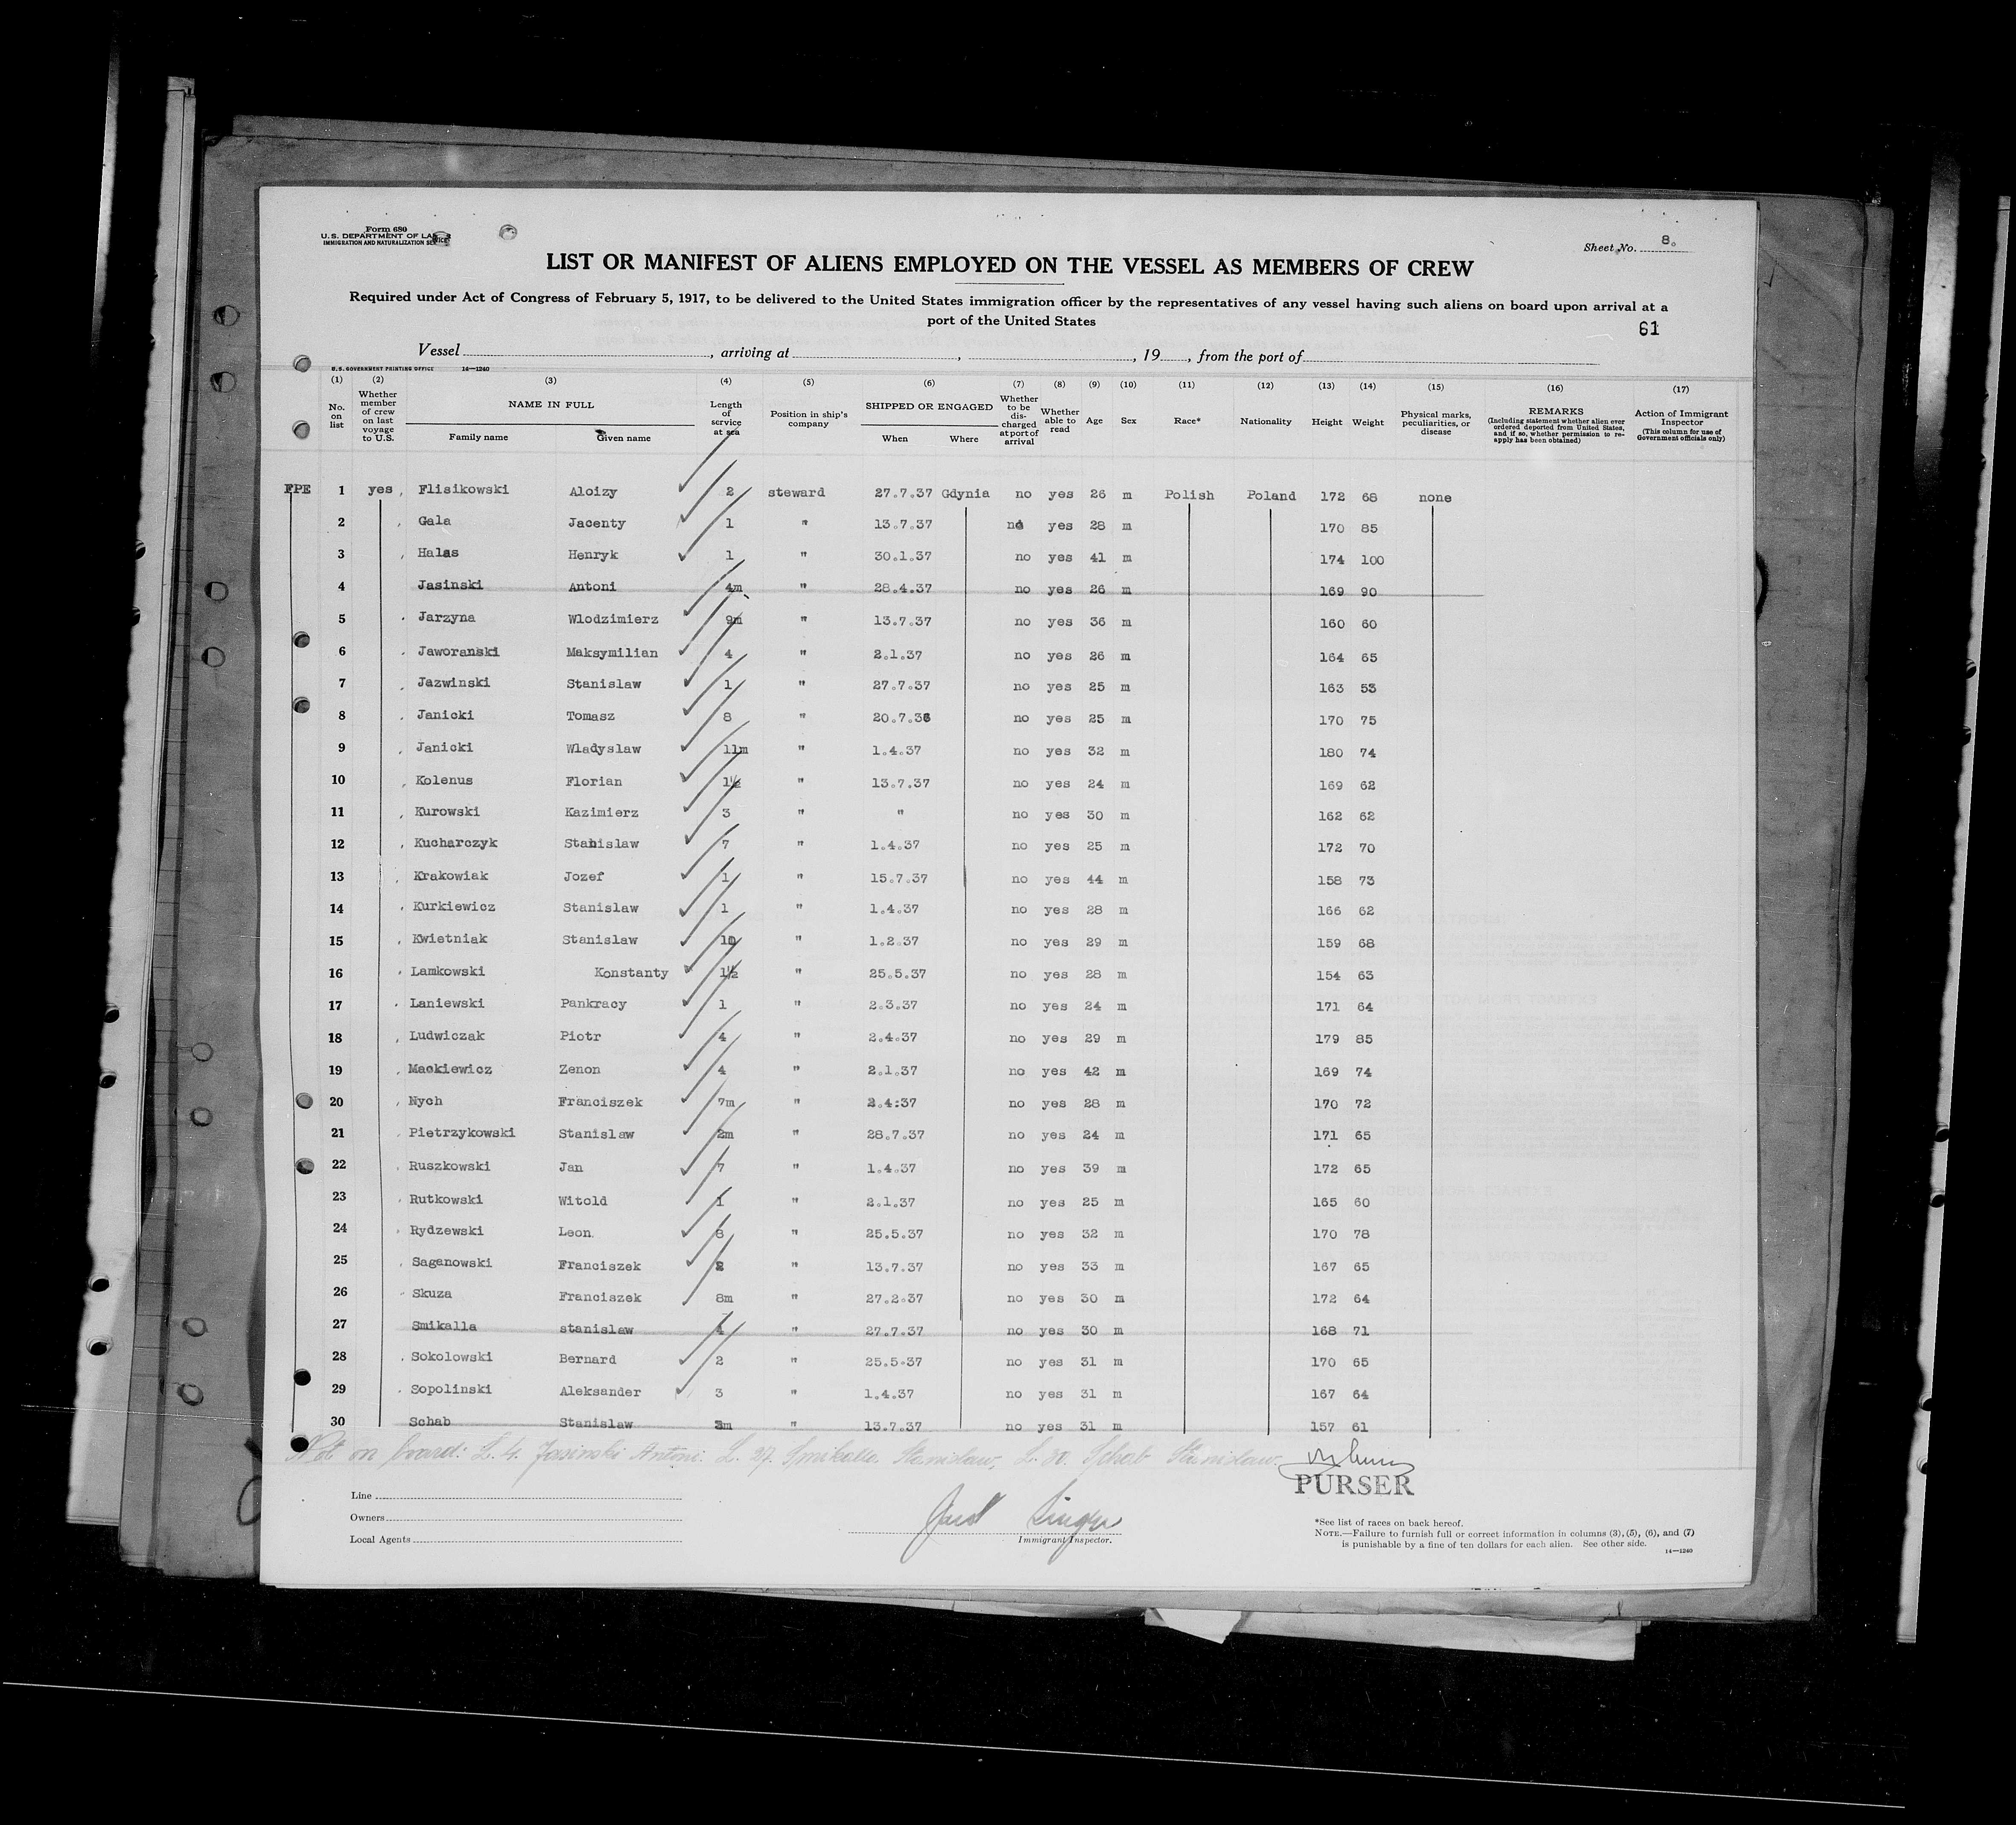 Form 680
U.S. DEPARTMENT OF LABOR
IMMIGRATION AND NATURALIZATION SERVICE
Sheet No. 8.
LIST OR MANIFEST OF ALIENS EMPLOYED ON THE VESSEL AS MEMBERS OF CREW
Required under Act of Congress of February 5, 1917, to be delivered to the United States immigration officer by the representatives of any vessel having such aliens on board upon arrival at a
port of the United States
61
Vessel, arriving at, , 19, from the port of
U.S. GOVERNMENT PRINTING OFFICE 14—1240
(1) (2) (3) (4) (5) (6) (7) (8) (9) (10) (11) (12) (13) (14) (15) (16) (17)
No. on list
Whether member of crew on last voyage to U.S.
NAME IN FULL
Family name Given name
Length of service at sea
Position in ship's company
SHIPPED OR ENGAGED
When Where
Whether to be discharged at port of arrival
Whether able to read
Age
Sex
Race*
Nationality
Height
Weight
Physical marks, peculiarities, or disease
REMARKS
(Including statement whether alien ever ordered deported from United States, and if so, whether permission to re-apply has been obtained)
Action of Immigrant Inspector
(This column for use of Government officials only)
FPE 1 yes Flisikowski Aloizy 2 steward 27.7.37 Gdynia no yes 26 m Polish Poland 172 68 none
2 Gala Jacenty 1 " 13.7.37 no yes 28 m 170 85
3 Halas Henryk 1 " 30.1.37 no yes 41 m 174 100
4 Jasinski Antoni 4m " 28.4.37 no yes 26 m 169 90
5 Jarzyna Wlodzimierz 9m " 13.7.37 no yes 36 m 160 60
6 Jaworanski Maksymilian 4 " 2.1.37 no yes 26 m 164 65
7 Jazwinski Stanislaw 1 " 27.7.37 no yes 25 m 163 53
8 Janicki Tomasz 8 " 20.7.36 no yes 25 m 170 75
9 Janicki Wladyslaw 11m " 1.4.37 no yes 32 m 180 74
10 Kolenus Florian 1½ " 13.7.37 no yes 24 m 169 62
11 Kurowski Kazimierz 3 " " no yes 30 m 162 62
12 Kucharczyk Stanislaw 7 " 1.4.37 no yes 25 m 172 70
13 Krakowiak Jozef 1 " 15.7.37 no yes 44 m 158 73
14 Kurkiewicz Stanislaw 1 " 1.4.37 no yes 28 m 166 62
15 Kwietniak Stanislaw " 1.2.37 no yes 29 m 159 68
16 Lamkowski Konstanty 1½ " 25.5.37 no yes 28 m 154 63
17 Laniewski Pankracy 1 " 2.3.37 no yes 24 m 171 64
18 Ludwiczak Piotr 4 " 2.4.37 no yes 29 m 179 85
19 Mackiewicz Zenon 4 " 2.1.37 no yes 42 m 169 74
20 Nych Franciszek 7m " 2.4:37 no yes 28 m 170 72
21 Pietrzykowski Stanislaw 2m " 28.7.37 no yes 24 m 171 65
22 Ruszkowski Jan 7 " 1.4.37 no yes 39 m 172 65
23 Rutkowski Witold 1 " 2.1.37 no yes 25 m 165 60
24 Rydzewski Leon 8 " 25.5.37 no yes 32 m 170 78
25 Saganowski Franciszek 2 " 13.7.37 no yes 33 m 167 65
26 Skuza Franciszek 8m " 27.2.37 no yes 30 m 172 64
27 Smikalla stanislaw " 27.7.37 no yes 30 m 168 71
28 Sokolowski Bernard 2 " 25.5.37 no yes 31 m 170 65
29 Sopolinski Aleksander 3 " 1.4.37 no yes 31 m 167 64
30 Schab Stanislaw " 13.7.37 no yes 31 m 157 61
Not on board: L. 4. Jasinski Antoni. L. 27. Smikalla Stanislaw, L. 30. Schab Stanislaw.
PURSER
Line
Owners
Local Agents
Immigrant Inspector.
*See list of races on back hereof.
NOTE.—Failure to furnish full or correct information in columns (3), (5), (6), and (7)
is punishable by a fine of ten dollars for each alien. See other side.
14—1240